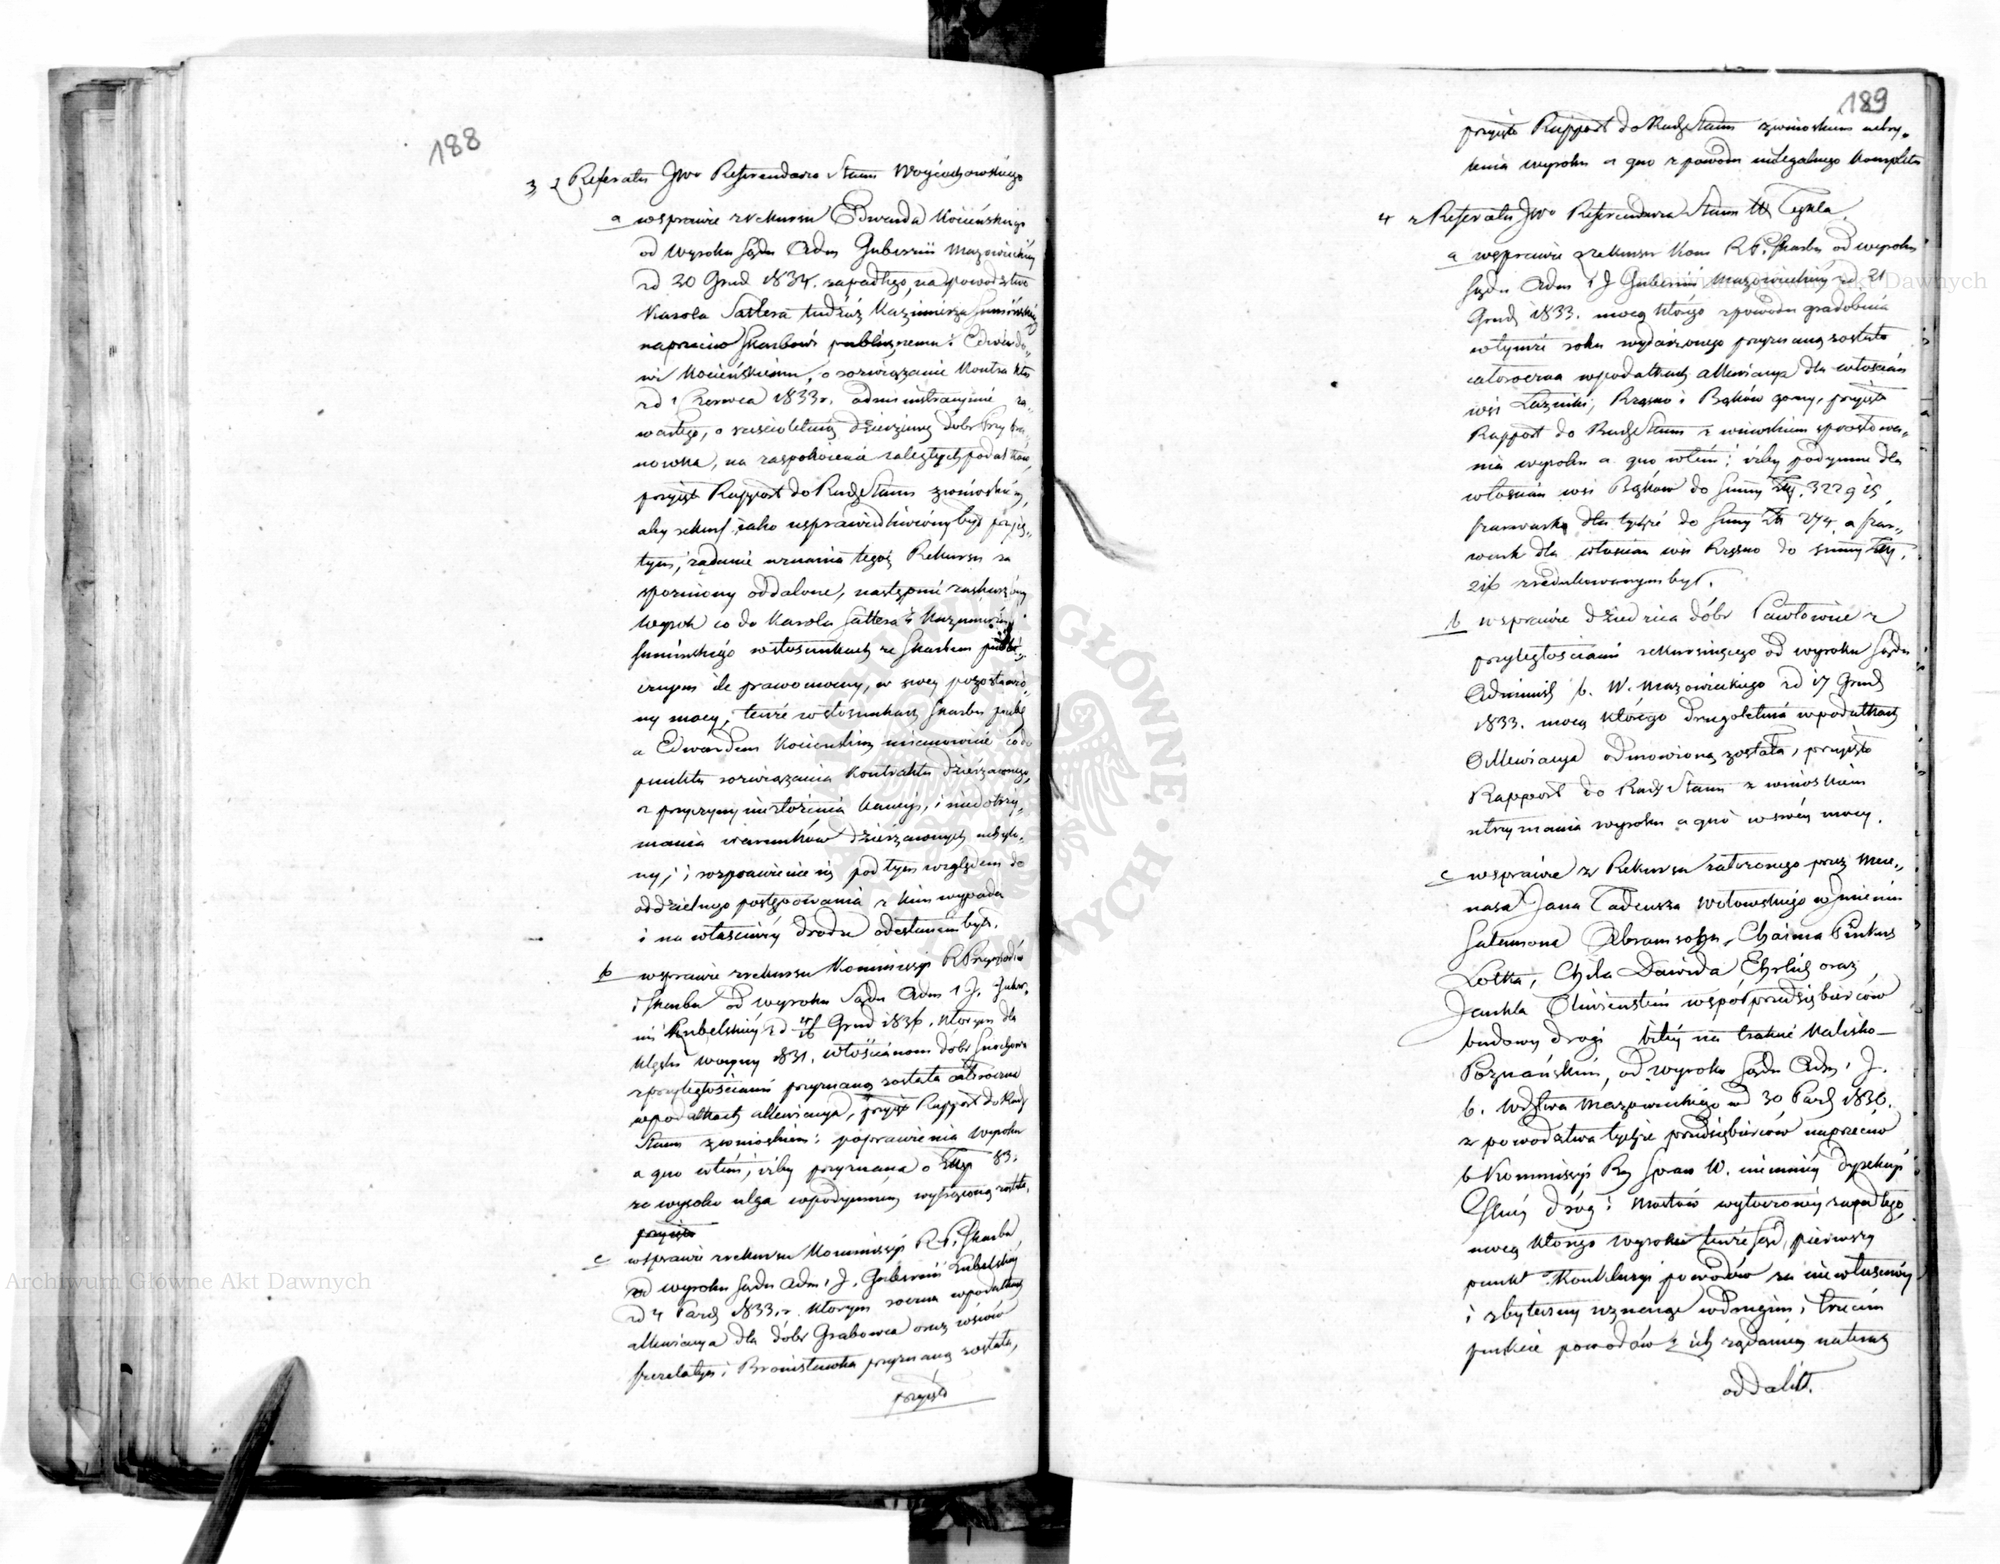 188
3 z Referatu JWo Referendarza Stanu Woyciechowskiego
a w sprawie z rekursu Edwarda Kocieńskiego
od Wyroku Sądu Adm Gubernii Mazowieckiey
zd 30 Grud 1834. zapadłego, na powództwo
Karola Sattera tudzież Kazimierza Sumińskiego
naprzeciw Skarbowi publicznemu i Edwardo„
wi Kocieńskiemu, o rozwiązanie Kontraktu
zd 1 Czerwca 1833 r. administracyinie za„
wartego, o sześcioletnią dzierżawę dobr
nowka, na zaspokoienie zaległych podatków,
przyięto Rapport do Rady Stanu z wnioskiem,
aby rekurs iako usprawiedliwiony był przyię„
tym, żądanie uznania tegoż Rekursu za
spoźniony oddalone, następnie zaskarżony
Wyrok co do Karola Sattera i Kazimierza
Sumińskiego w stosunkach ze Skarbem publi„
cznym ile prawomocny, w swey pozostawio„
ny mocy, tenże w stosunkach Skarbu publ
a Edwardem Kocieńskim mianowicie co do
punktu rozwiązania Kontraktu dzierżawnego,
z przyczyny niezłożenia kaucyi, i niedotrzy„
mania warunków dzierżawnych uchylo„
ny, i rozprawienie się pod tym względem do
oddzielnego postępowania z kim wypada
i na właściwą drodę odesłanem było.
b w sprawie z rekursu Kommissyi R Przychodów
i Skarbu od wyroku Sądu Adm 1 J. Guber„
nii Lubelskiey zd 4/16 Grud 1836. którym dla
klęski woyny 1831. włościanom dobr
z przyległościami przyznaną została całoroczna
w podatkach allewiacya, przyięto Rapport do Rady
Stanu z wnioskiem: poprawienia Wyroku
a quo w tém, iżby przyznana o Złp 83.
za wysoko ulga w podymném wyłączoną została.
przyięto
c w sprawie z rekursu Kommissyi R. P. i Skarbu,
od wyroku Sądu Adm. 1 J. Gubernii Lubelskiey
zd 4 Paźd 1833. r. którym roczna w podatkach
allewiacya dla dóbr Grabowca oraz wsiów
Szczelatyn i Bronisławka przyznaną została,
przyięto
189
przyięto Rapport do Rady Stanu z wnioskiem uchy„
lenia wyroku a quo z powodu nielegalnego kompletu
4 z Referatu JWo Referendarza Stanu Tykla.
a w sprawie z rekursu Kom R. P. i Skarbu od wyroku
Sądu Adm 1 J Gubernii Mazowieckiey zd. 21
Grud 1833. mocą którego z powodu gradobicia
w tymże roku wydarzonego przyznaną została
całoroczna w podatkach allewiacya dla włościan
wsi Łaźniki, Rząśno i Bąków gorny, przyięto
Rapport do Rady Stanu z wnioskiem sprostowa„
nia wyroku a quo w tém; iżby podymne dla
włościan wsi Bąków do Summy Złp. 322 g 25,
szarwark dla tychże do Sumy Złp 274 a szar„
wark dla włościan wsi Rząśno do summy Złp.
216 zredukowanym był.
b w sprawie dziedzica dóbr Pawłowic z
przyległościami rekursuiącego od wyroku Sądu
Administ b. W. Mazowieckiego zd 17 Grud
1833. mocą którego drugoletnia w podatkach
Allewiacya odmowioną została, przyięto
Rapport do Rady Stanu z wnioskiem
utrzymania wyroku a quo w swéy mocy.
c w sprawie z Rekursu założonego przez Mece„
nasa Jana Tadeusza Wołowskiego w Imieniu
Salamona Abramsohn, Chaima Pinkus
Lotka, Chila Dawida Ehrlich oraz
Jankla Oliwenstein współprzedsiębierców
budowy drogi bitéy na trakcie Kalisko-
Poznańskim, od wyroku Sądu Adm 1 J.
b. Wdztwa Mazowieckiego zd 30 Paźd 1836.
z powodztwa tychże przedsiębierców naprzeciw
b Kommissyi Rz Spraw W. niemniey Dyrekcyi
Głney Dróg i Mostów wytoczoney zapadłego,
mocą którego wyroku tenże Sąd, pierwszy
punkt Konkluzyi powodów za niewłaściwy
i zbyteczny uznaiąc w drugim i trzecim
punkcie powodów z ich żądaniem na teraz
oddalił.
Archiwum Główne Akt Dawnych
Archiwum Główne Akt Dawnych